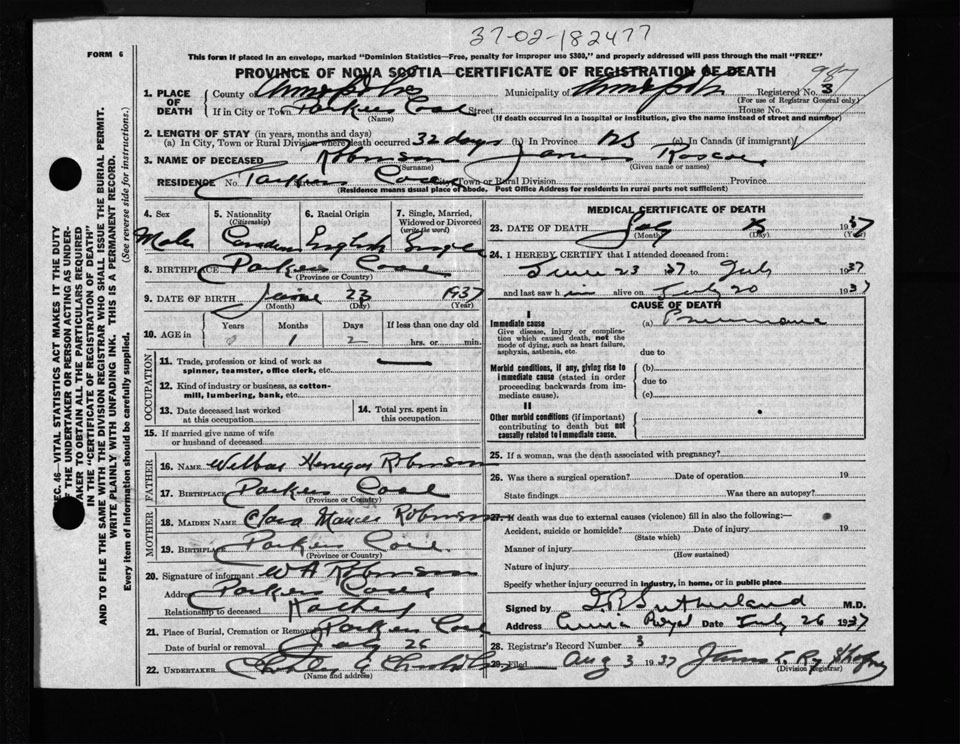 37-02-182477
FORM 6
This form if placed in an envelope, marked "Dominion Statistics—Free, penalty for improper use $300," and properly addressed will pass through the mail "FREE"
PROVINCE OF NOVA SCOTIA—CERTIFICATE OF REGISTRATION OF DEATH
987
1. PLACE OF DEATH
County of Annapolis Municipality of Annapolis Registered No. 3
(For use of Registrar General only)
If in City or Town Parkers Cove Street House No.
(Name) (If death occurred in a hospital or institution, give the name instead of street and number)
2. LENGTH OF STAY (in years, months and days)
(a) In City, Town or Rural Division where death occurred 32 days (b) In Province NS (c) In Canada (if immigrant)
3. NAME OF DECEASED Robinson James Roscoe
(Surname) (Given name or names)
RESIDENCE No. Parkers Cove City, Town or Rural Division Province
(Residence means usual place of abode. Post Office Address for residents in rural parts not sufficient)
4. Sex 5. Nationality (Citizenship) 6. Racial Origin 7. Single, Married, Widowed or Divorced (write the word)
Male Canadian English Single
8. BIRTHPLACE Parkers Cove
(Province or Country)
9. DATE OF BIRTH June 23 1937
(Month) (Day) (Year)
10. AGE in Years Months Days If less than one day old
0 1 2 hrs. or min.
OCCUPATION
11. Trade, profession or kind of work as spinner, teamster, office clerk, etc. —
12. Kind of industry or business, as cotton-mill, lumbering, bank, etc.
13. Date deceased last worked at this occupation
14. Total yrs. spent in this occupation
15. If married give name of wife or husband of deceased
FATHER
16. NAME Robinson
17. BIRTHPLACE Parkers Cove
(Province or Country)
MOTHER
18. MAIDEN NAME Clara Robinson
19. BIRTHPLACE Parkers Cove
(Province or Country)
20. Signature of informant W A Robinson
Address Parkers Cove
Relationship to deceased Father
21. Place of Burial, Cremation or Removal Parkers Cove
Date of burial or removal 26
22. UNDERTAKER
(Name and address)
MEDICAL CERTIFICATE OF DEATH
23. DATE OF DEATH July 1937
(Month) (Day) (Year)
24. I HEREBY CERTIFY that I attended deceased from:
June 23 37 to July 1937
and last saw him alive on July 20 1937
CAUSE OF DEATH
I
Immediate cause
Give disease, injury or complication which caused death, not the mode of dying, such as heart failure, asphyxia, asthenia, etc.
(a) Pneumonia
due to
Morbid conditions, if any, giving rise to immediate cause (stated in order proceeding backwards from immediate cause).
(b)
due to
(c)
II
Other morbid conditions (if important) contributing to death but not causally related to immediate cause.
25. If a woman, was the death associated with pregnancy?
26. Was there a surgical operation? Date of operation 19
State findings Was there an autopsy?
27. If death was due to external causes (violence) fill in also the following:—
Accident, suicide or homicide? Date of injury 19
(State which)
Manner of injury
(How sustained)
Nature of injury
Specify whether injury occurred in industry, in home, or in public place
Signed by Sutherland M.D.
Address Annis Royal Date July 26 1937
28. Registrar's Record Number 3
29. Filed Aug 3 1937
(Division Registrar)
SEC. 46—VITAL STATISTICS ACT MAKES IT THE DUTY OF THE UNDERTAKER OR PERSON ACTING AS UNDERTAKER TO OBTAIN ALL THE PARTICULARS REQUIRED IN THE "CERTIFICATE OF REGISTRATION OF DEATH"
AND TO FILE THE SAME WITH THE DIVISION REGISTRAR WHO SHALL ISSUE THE BURIAL PERMIT.
WRITE PLAINLY WITH UNFADING INK. THIS IS A PERMANENT RECORD.
Every item of Information should be carefully supplied. (See reverse side for instructions.)